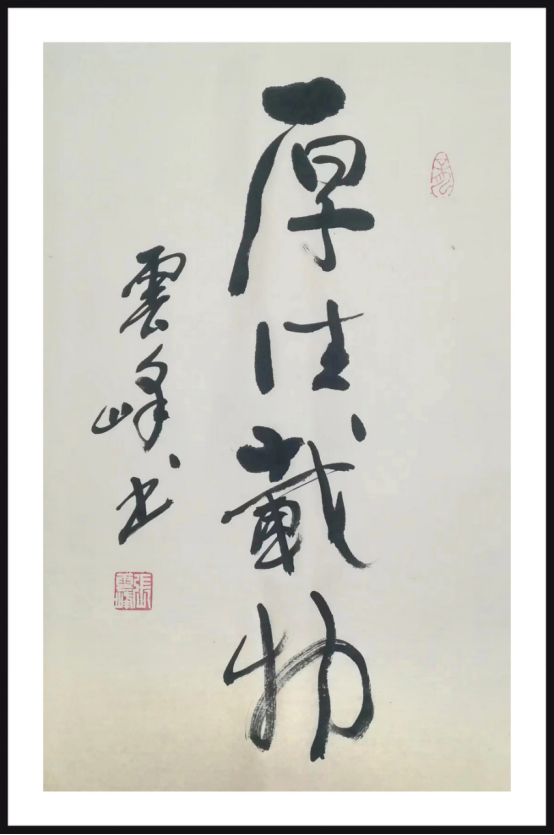 厚德載物
雲峰书
張雲峰